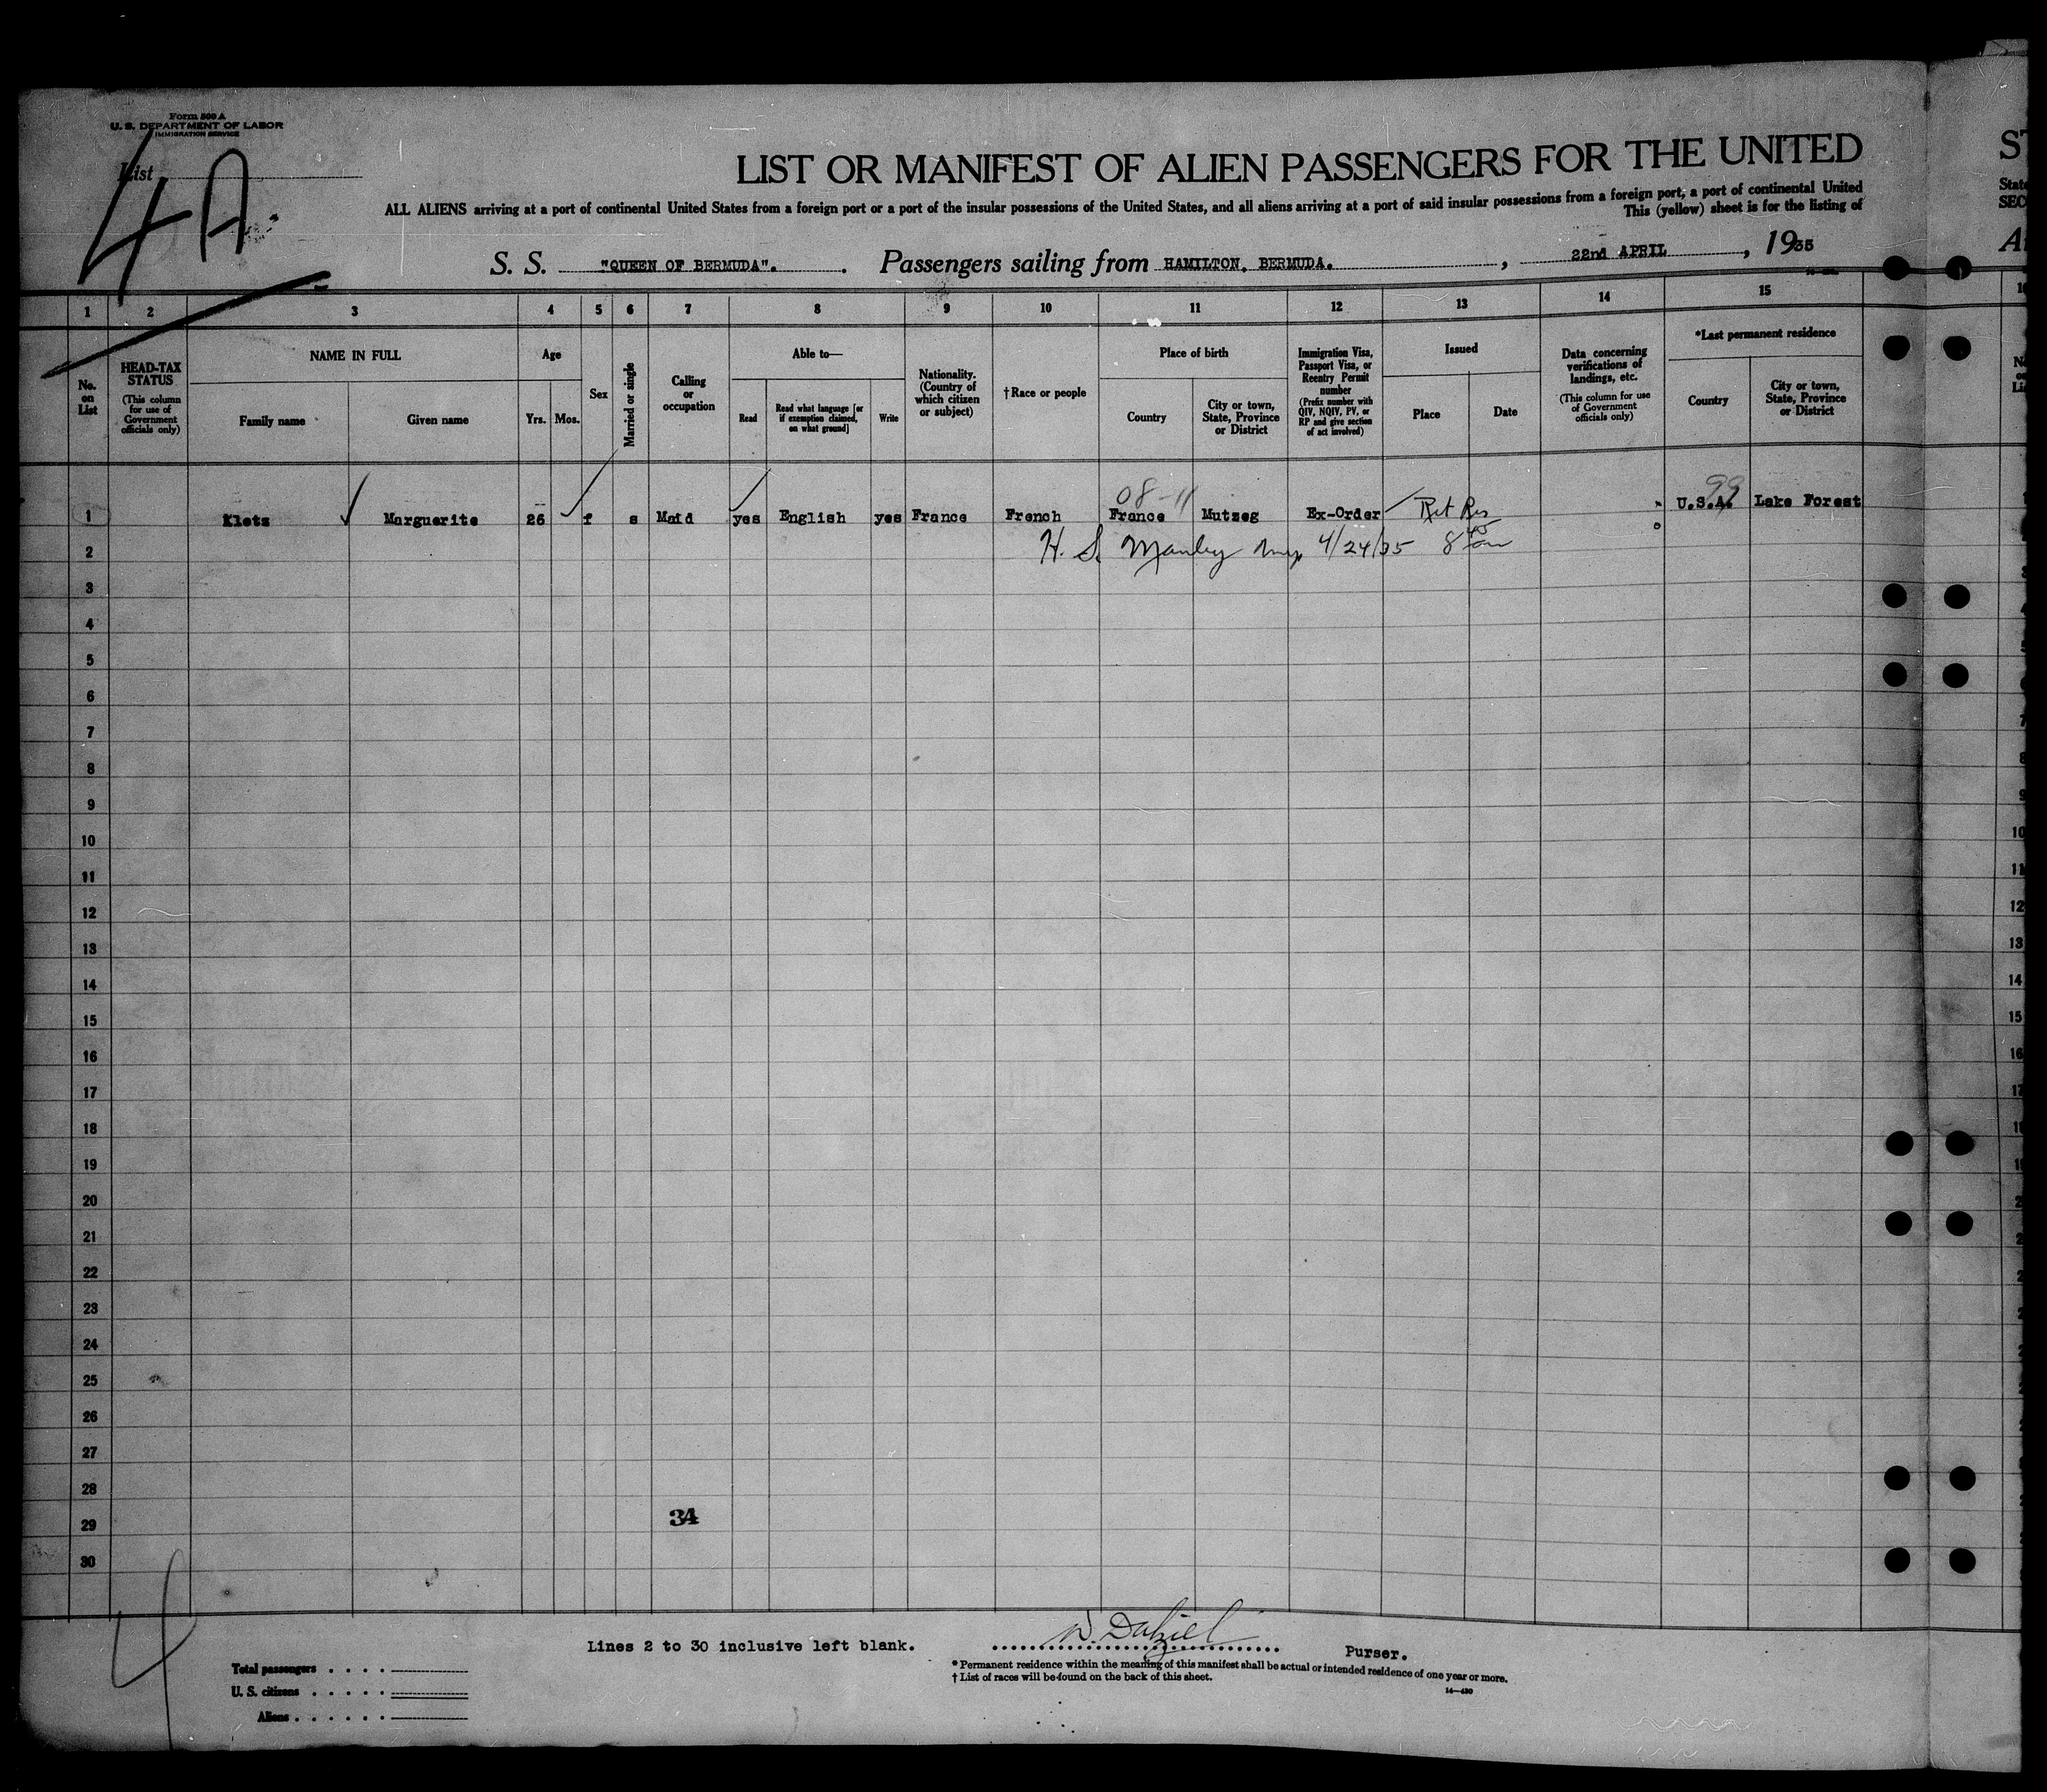 Form 500 A
U. S. DEPARTMENT OF LABOR
IMMIGRATION SERVICE
List
4 A.
LIST OR MANIFEST OF ALIEN PASSENGERS FOR THE UNITED
ALL ALIENS arriving at a port of continental United States from a foreign port or a port of the insular possessions of the United States, and all aliens arriving at a port of said insular possessions from a foreign port, a port of continental United
This (yellow) sheet is for the listing of
S. S. "QUEEN OF BERMUDA". Passengers sailing from HAMILTON, BERMUDA. , 22nd APRIL , 1935
1 2 3 4 5 6 7 8 9 10 11 12 13 14 15
No. on List
HEAD-TAX STATUS
(This column for use of Government officials only)
NAME IN FULL
Family name
Given name
Age
Yrs. Mos.
Sex
Married or single
Calling or occupation
Able to—
Read
Read what language [or if exemption claimed, on what ground]
Write
Nationality. (Country of which citizen or subject)
†Race or people
Place of birth
Country
City or town, State, Province or District
Immigration Visa, Passport Visa, or Reentry Permit number
(Prefix number with QIV, NQIV, PV, or RP and give section of act involved)
Issued
Place
Date
Data concerning verifications of landings, etc.
(This column for use of Government officials only)
*Last permanent residence
Country
City or town, State, Province or District
08-11
99
1 Klets Marguerite 26 f s Maid yes English yes France French France Mutzeg Ex-Order Ret Res U.S.A. Lake Forest
2 H. S. Manley 4/24/35 8 45 am
3
4
5
6
7
8
9
10
11
12
13
14
15
16
17
18
19
20
21
22
23
24
25
26
27
28
29
34
30
Lines 2 to 30 inclusive left blank.
W. Dalziel
Purser.
Total passengers
U. S. citizens
Aliens
* Permanent residence within the meaning of this manifest shall be actual or intended residence of one year or more.
† List of races will be found on the back of this sheet.
14—430